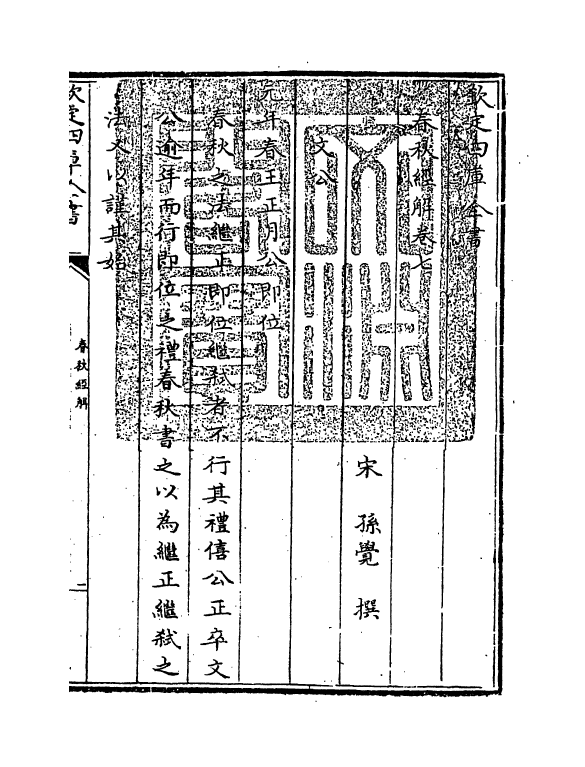 欽定四庫全書
春秋經解卷七
宋 孫覺 撰
文公
元年春王正月公即位
春秋之法繼正即位繼弑者不行其禮僖公正卒文
公逾年而行即位之禮春秋書之以為繼正繼弑之
法又以謹其始
欽定四庫全書
春秋經解